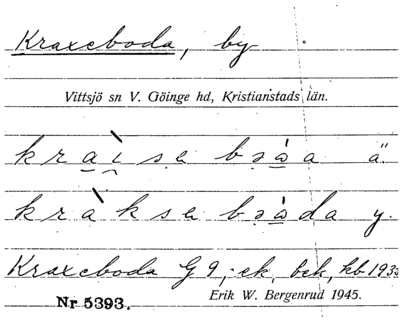 Kraxeboda, by
Vittsjö sn V. Göinge hd, Kristianstads län.
kraìse bɔàa ä.
kràkse bɔàda y.
Kraxeboda G 9, ek, bek, hb 1933
Nr 5393. Erik W. Bergenrud 1945.